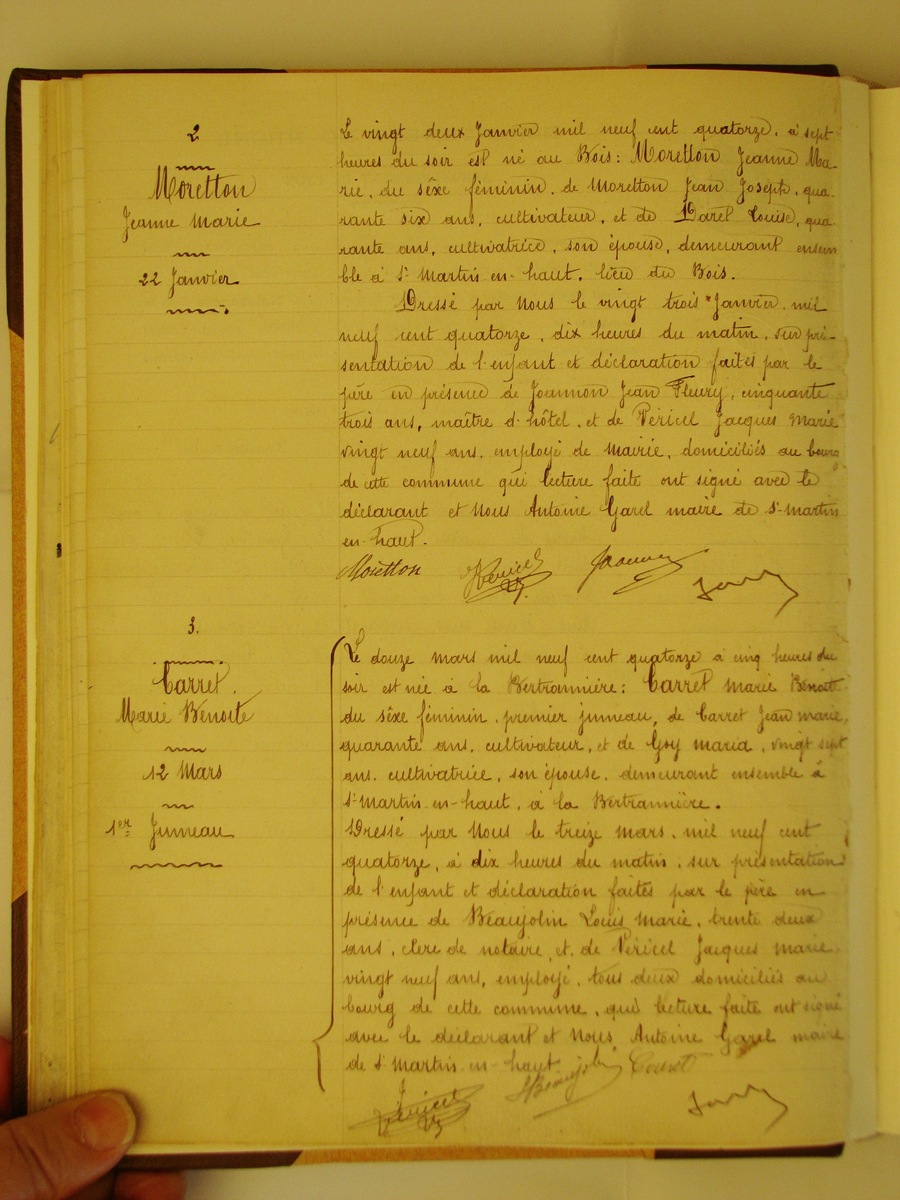 2
Moretton
Jeanne Marie
22 Janvier
Le vingt deux Janvier mil neuf cent quatorze, à sept
heures du soir est né au Bois: Moretton Jeanne Ma-
rie, du sêxe féminin, de Moretton Jean Joseph, qua-
rante six ans, cultivateur, et de Louise, qua-
rante ans, cultivatrice, son épouse, demeurant ensem
ble à St Martin en-haut, lieu du Bois.
Dressé par Nous le vingt trois Janvier, mil
neuf cent quatorze, dix heures du matin, sur pré-
sentation de l'enfant et déclaration faites par le
père en présence de Joannon Jean Fleury, cinquante
trois ans, maître d'hôtel, et de Véricel Jacques Marie
vingt neuf ans, employé de mairie, domiciliés au bourg
de cette commune qui lecture faite ont signé avec le
déclarant et Nous Antoine Garel maire de St-Martin
en-haut.
Moretton Véricel Joannon
3.
Carret.
Marie Benoite
12 Mars
1er Jumeau
Le douze mars mil neuf cent quatorze à cinq heures du
soir est née à la Bertrannière: Carret Marie Benoite
du sêxe féminin, premier jumeau, de Carret Jean Marie,
quarante ans, cultivateur, et de Goy Maria, vingt sept
ans, cultivatrice, son épouse, demeurant ensemble à
St-Martin-en-haut, à la Bertrannière.
Dressé par Nous le treize mars, mil neuf cent
quatorze, à dix heures du matin, sur présentation
de l'enfant et déclaration faites par le père en
présence de Beaujolin Louis Marie, trente deux
ans, clerc de notaire, et de Véricel Jacques Marie
vingt neuf ans, employé, tous deux domiciliés au
bourg de cette commune, qui lecture faite ont signé
avec le déclarant et Nous Antoine Garel maire
de St Martin-en-haut.
Beaujolin Carret
Véricel